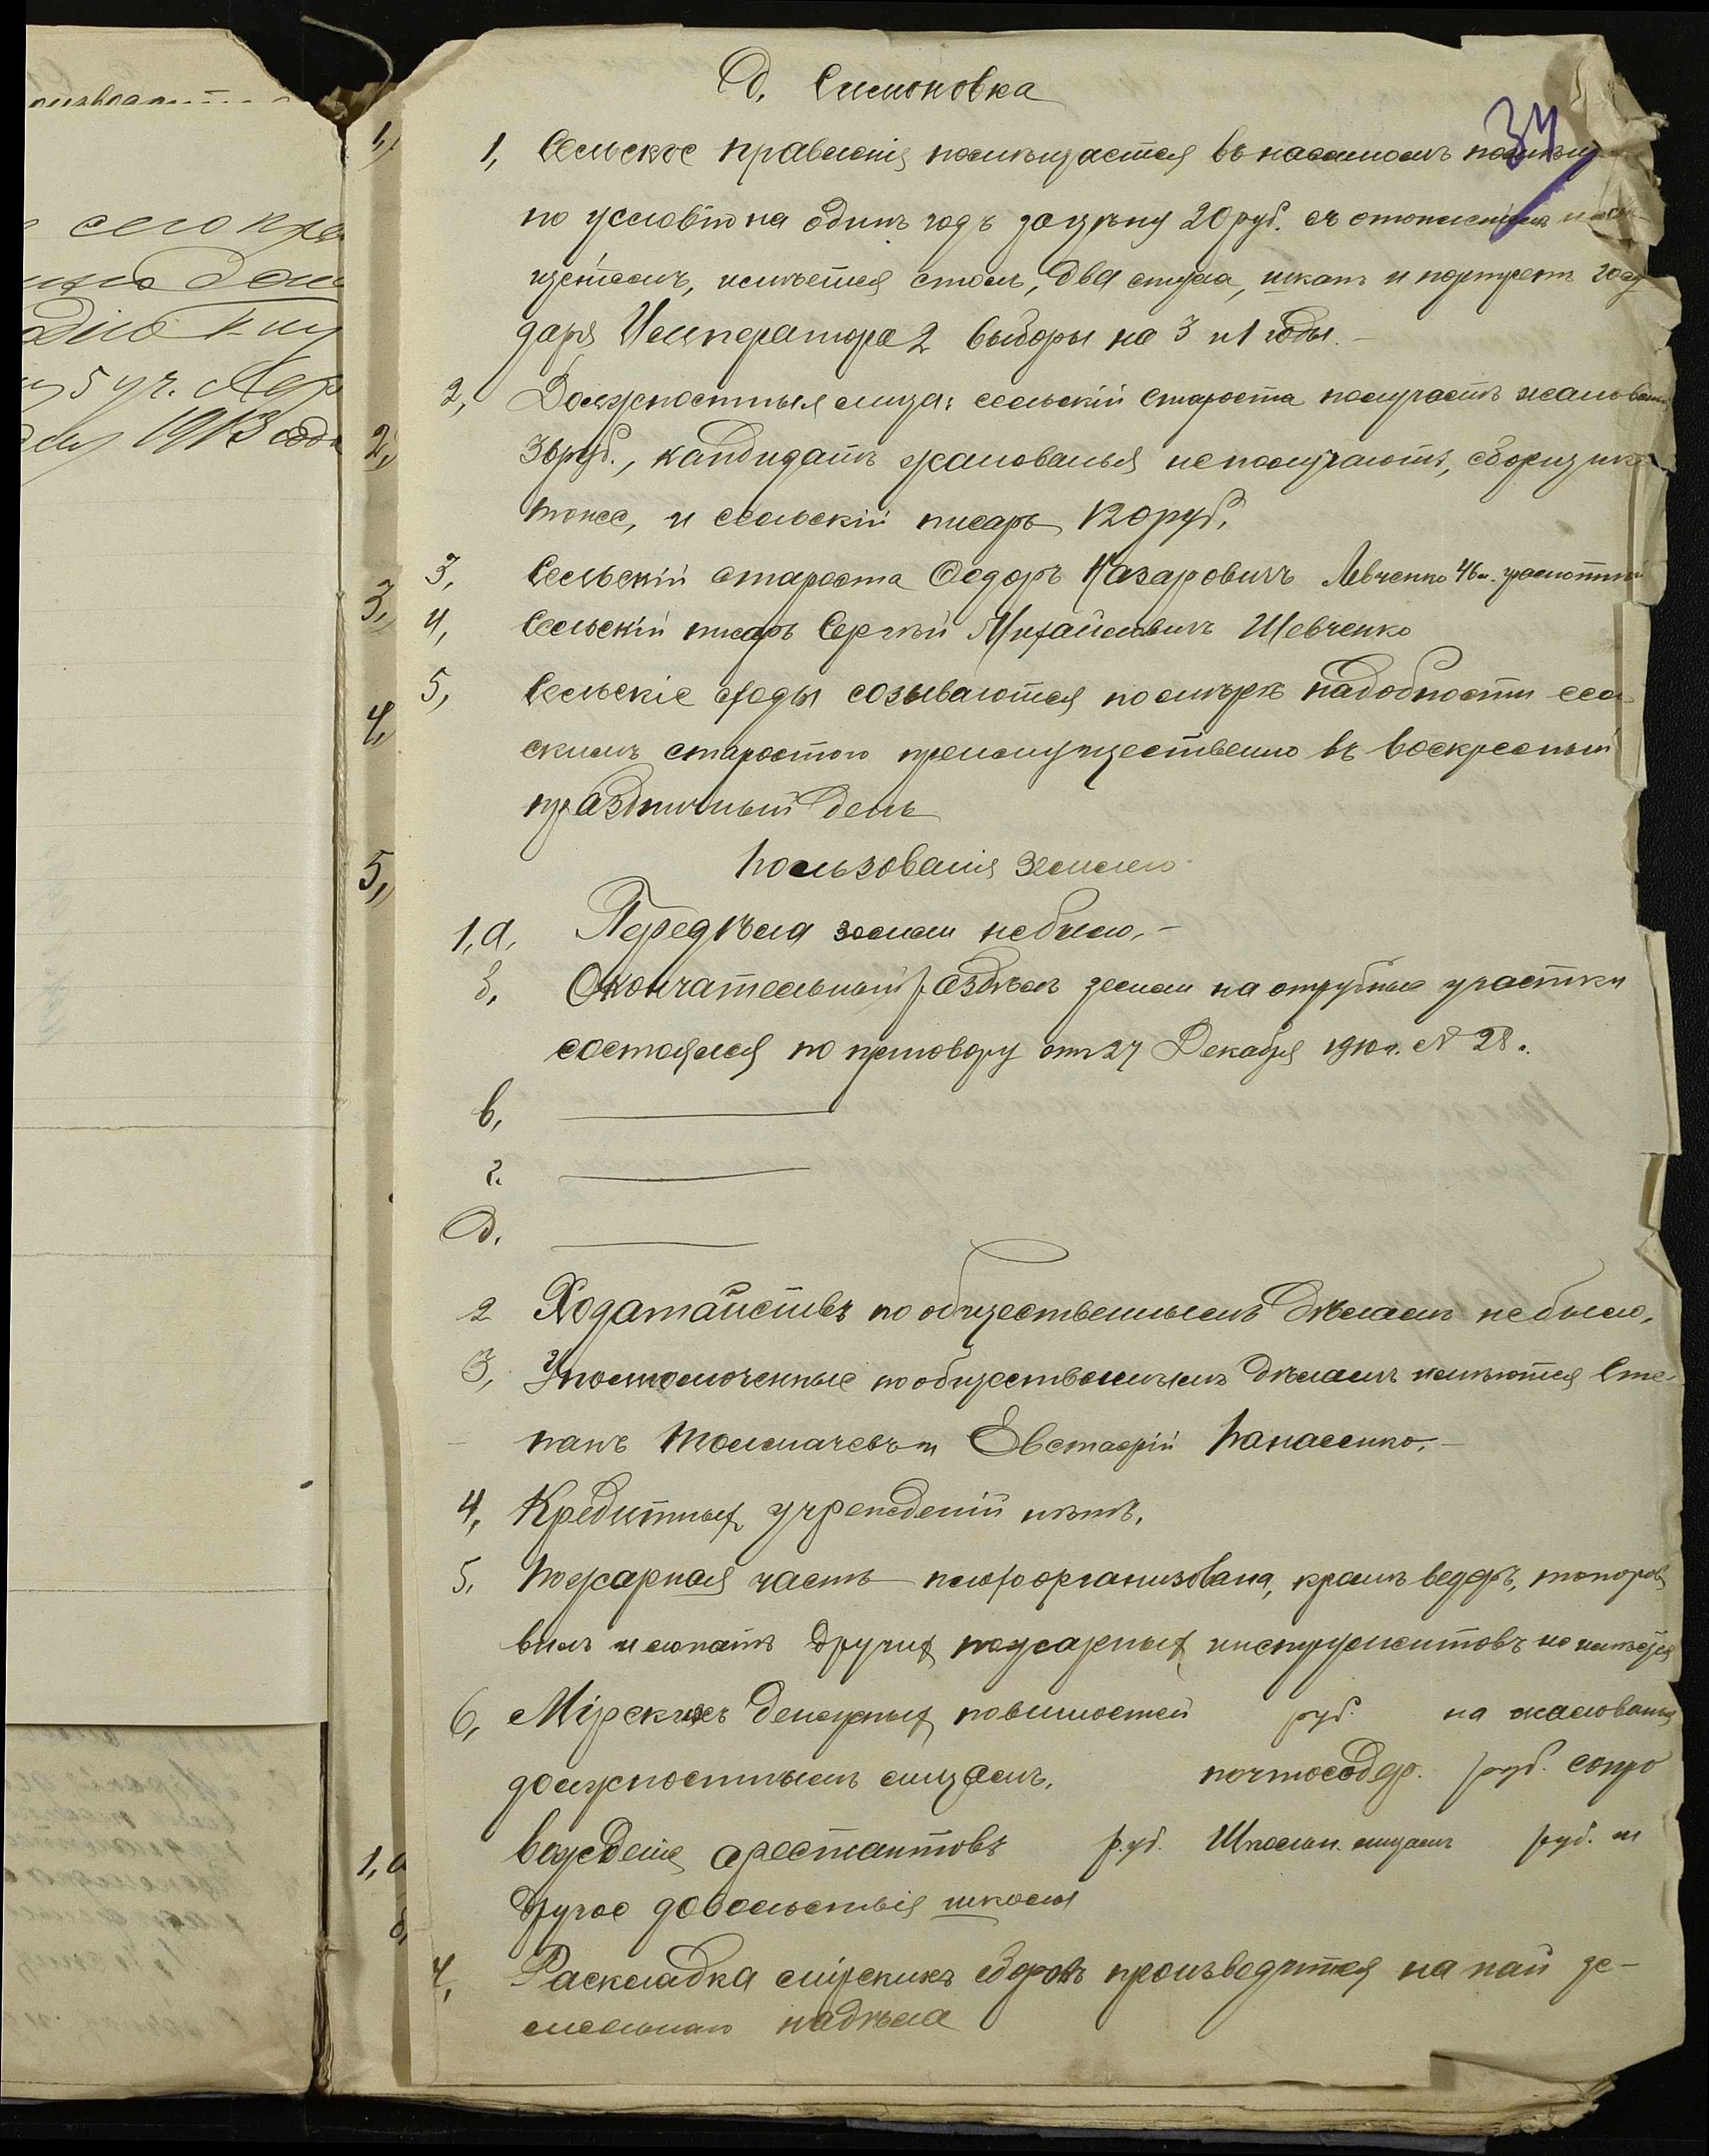 34
Д. Симоновка
1, Сельское правленія помѣщается въ наемномъ помѣщ
по условію на одинъ годъ за цѣну 20 руб. съ отопленіемъ и осв
щеніемъ, имѣется столъ, два стула, шкапъ и портретъ Госу
даря Императора 2 выборы на 3 и 1 годы. –
2, Должностныя лица: сельскій староста получаетъ жалованья
36 руб., кандидатъ жалованья неполучаютъ, сборщики
тоже, и сельскій писарь 120 руб.
3, Сельскій староста Ѳедоръ Назаровичъ Левченко 46 л. грамотный
4, Сельскій писарь Сергѣй Михайловичъ Шевченко
5, Сельскіе сходы созываются помѣрѣ надобности сель
скимъ старостою преимущественно въ воскресный
праздничный день
Пользованія землею
1, а, Передѣла земли небыло. –
б, Окончательный раздѣлъ земли на отрубные участки
состоялся по приговору отъ 27 Декабря 1910 г. № 28.
в,
г.
д.
2 Ходатайствъ по общественнымъ дѣламъ небыло,
3, Уполномоченные по общественнымъ дѣламъ имѣются Сте-
панъ Толмачевъ и Евстафій Панасенко. –
4, Кредитныхъ учрежденій нѣтъ.
5, Пожарная часть плохо организована, кромѣ ведеръ, топоровъ
вилъ и лопатъ другихъ пожарныхъ инструментовъ не имѣется
6, Мірскихъ денежныхъ повинностей руб. на жалованья
должностнымъ лицамъ, почтосодер. руб. сопро
вожденіе арестантовъ руб. Школьн. лицамъ руб. и
другое довольствія школы
7, Раскладка мірскихъ сборовъ производится на пай зе-
мельнаго надѣла
село
5 уч.
1913 года
1,
2,
3,
4,
5,
1, а
б,